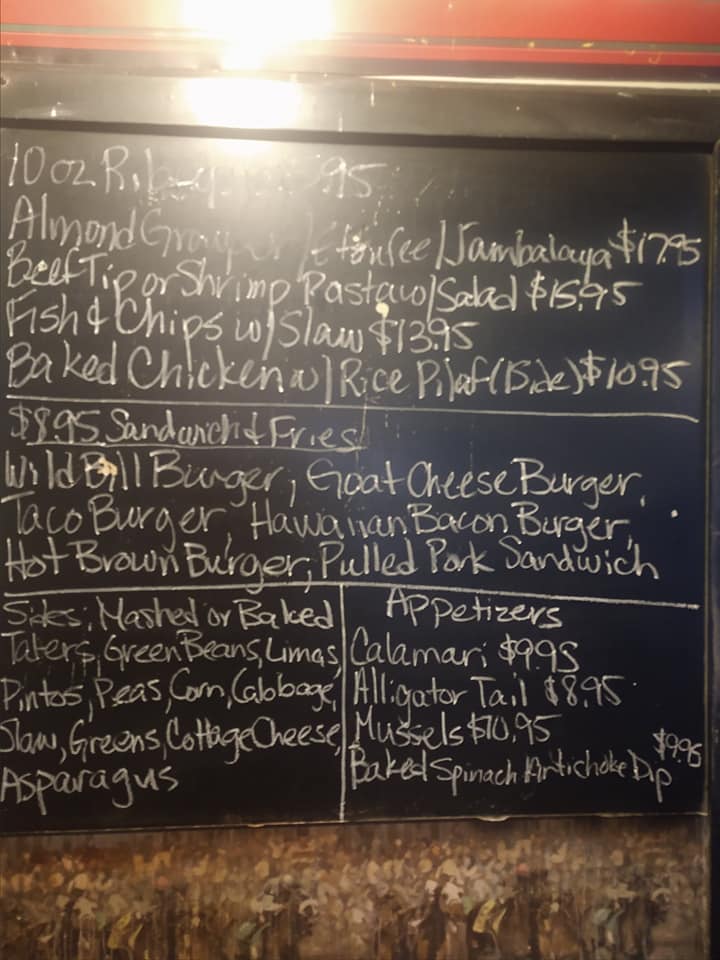 10 oz Ribeye 95
Almond Grouper w/Etoufee/Jambalaya $17.95
Beef Tip or Shrimp Pasta w/Salad $15.95
Fish & Chips w/Slaw $13.95
Baked Chicken w/Rice Pilaf (1 Side) $10.95
$8.95 Sandwich & Fries
Wild Bill Burger, Goat Cheese Burger,
Taco Burger, Hawaiian Bacon Burger,
Hot Brown Burger, Pulled Pork Sandwich
Sides: Mashed or Baked
Taters, Green Beans, Limas,
Pintos, Peas, Corn, Cabbage,
Slaw, Greens, Cottage Cheese,
Asparagus
Appetizers
Calamari $9.95
Alligator Tail $8.95
Mussels $10.95
Baked Spinach Artichoke Dip $9.95